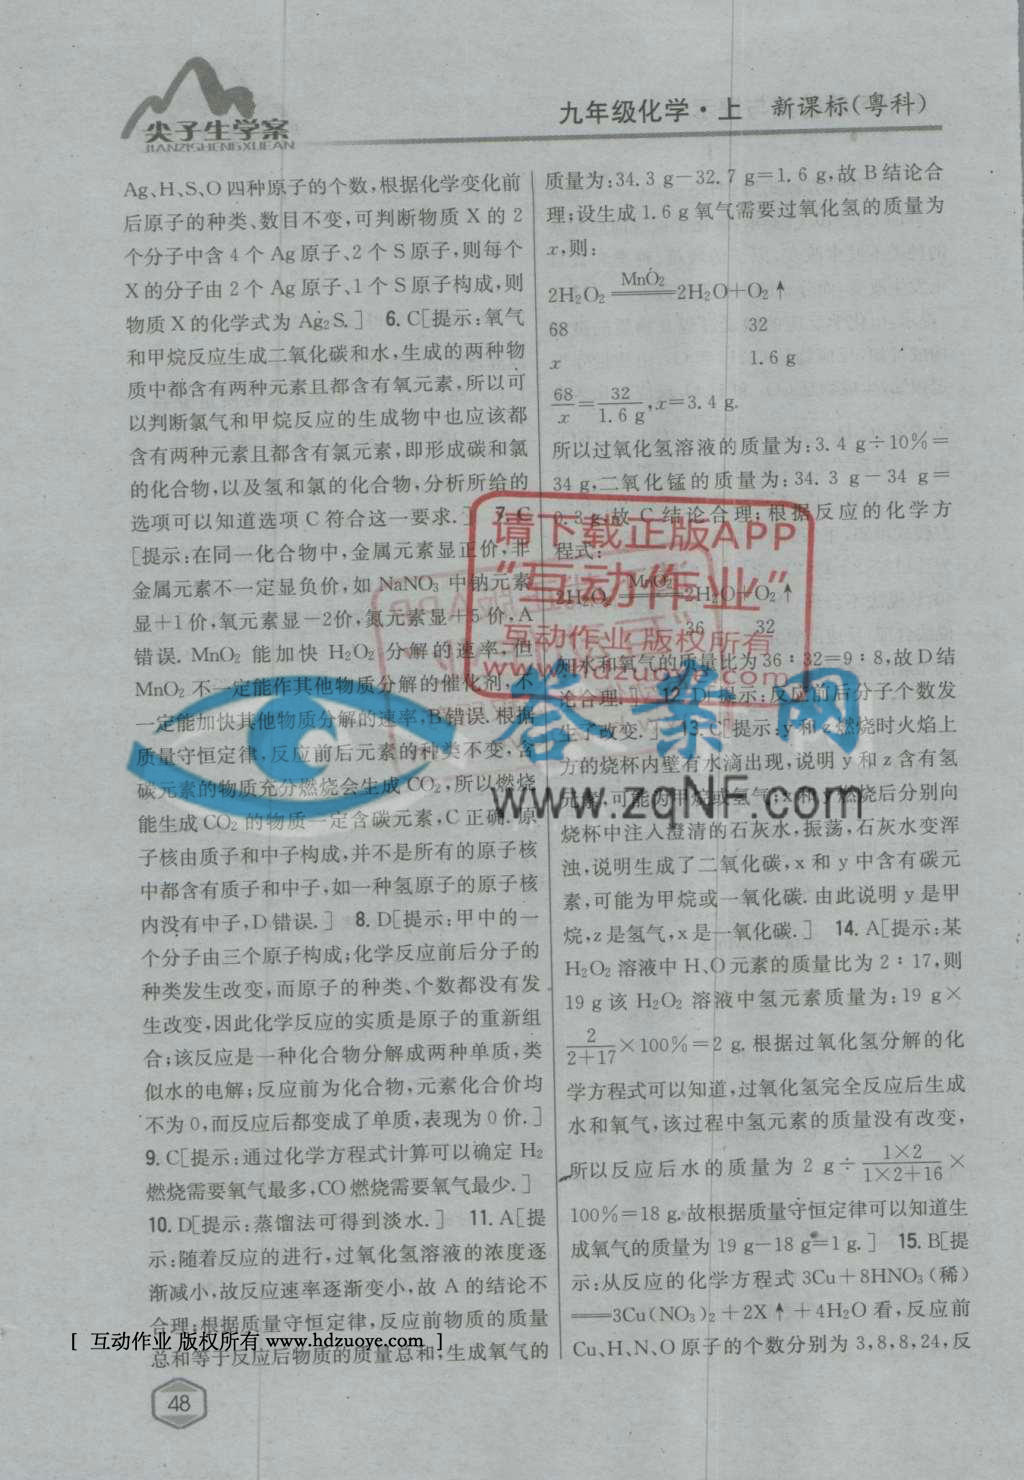 尖子生学案
JIANZISHENGXUEAN
九年级化学·上 新课标(粤科)
Ag、H、S、O四种原子的个数,根据化学变化前
后原子的种类、数目不变,可判断物质 X 的 2
个分子中含 4 个 Ag 原子、2 个 S 原子,则每个
X 的分子由 2 个 Ag 原子、1 个 S 原子构成,则
物质 X 的化学式为 Ag₂S.] 6. C[提示:氧气
和甲烷反应生成二氧化碳和水,生成的两种物
质中都含有两种元素且都含有氧元素,所以可
以判断氯气和甲烷反应的生成物中也应该都
含有两种元素且都含有氯元素,即形成碳和氯
的化合物,以及氢和氯的化合物,分析所给的
选项可以知道选项 C 符合这一要求.] 7. C
[提示:在同一化合物中,金属元素显正价,非
金属元素不一定显负价,如 NaNO₃ 中钠元素
显+1价,氧元素显-2价,氮元素显+5价,A
错误. MnO₂ 能加快 H₂O₂ 分解的速率,但
MnO₂ 不一定能作其他物质分解的催化剂,不
一定能加快其他物质分解的速率,B错误.根据
质量守恒定律,反应前后元素的种类不变,含
碳元素的物质充分燃烧会生成 CO₂,所以燃烧
能生成 CO₂ 的物质一定含碳元素,C 正确.原
子核由质子和中子构成,并不是所有的原子核
中都含有质子和中子,如一种氢原子的原子核
内没有中子,D错误.] 8. D[提示:甲中的一
个分子由三个原子构成;化学反应前后分子的
种类发生改变,而原子的种类、个数都没有发
生改变,因此化学反应的实质是原子的重新组
合;该反应是一种化合物分解成两种单质,类
似水的电解;反应前为化合物,元素化合价均
不为0,而反应后都变成了单质,表现为0价.]
9. C[提示:通过化学方程式计算可以确定 H₂
燃烧需要氧气最多,CO燃烧需要氧气最少.]
10. D[提示:蒸馏法可得到淡水.] 11. A[提
示:随着反应的进行,过氧化氢溶液的浓度逐
渐减小,故反应速率逐渐变小,故 A 的结论不
合理;根据质量守恒定律,反应前物质的质量
总和等于反应后物质的质量总和,生成氧气的
质量为:34.3 g-32.7 g=1.6 g,故 B 结论合
理;设生成 1.6 g 氧气需要过氧化氢的质量为
x,则:
2H₂O₂ ══MnO₂══ 2H₂O+O₂↑
68 32
x 1.6 g
68/x=32/1.6 g,x=3.4 g.
所以过氧化氢溶液的质量为:3.4 g÷10%=
34 g,二氧化锰的质量为:34.3 g-34 g=
0.3 g,故 C 结论合理;根据反应的化学方
程式:
2H₂O₂ ══MnO₂══ 2H₂O+O₂↑
36 32
知水和氧气的质量比为36∶32=9∶8,故D结
论合理.] 12. D[提示:反应前后分子个数发
生了改变.] 13. C[提示:y和z燃烧时火焰上
方的烧杯内壁有水滴出现,说明 y 和 z 含有氢
元素,可能为甲烷或氢气;x和y燃烧后分别向
烧杯中注入澄清的石灰水,振荡,石灰水变浑
浊,说明生成了二氧化碳,x 和 y 中含有碳元
素,可能为甲烷或一氧化碳.由此说明 y 是甲
烷,z是氢气,x是一氧化碳.] 14. A[提示:某
H₂O₂ 溶液中 H、O 元素的质量比为 2∶17,则
19 g 该 H₂O₂ 溶液中氢元素质量为:19 g×
2/(2+17)×100%=2 g.根据过氧化氢分解的化
学方程式可以知道,过氧化氢完全反应后生成
水和氧气,该过程中氢元素的质量没有改变,
所以反应后水的质量为 2 g÷(1×2)/(1×2+16)×
100%=18 g.故根据质量守恒定律可以知道生
成氧气的质量为 19 g-18 g=1 g.] 15. B[提
示:从反应的化学方程式 3Cu+8HNO₃(稀)
══3Cu(NO₃)₂+2X↑+4H₂O 看,反应前
Cu、H、N、O原子的个数分别为 3,8,8,24,反
请下载正版APP
“互动作业”
互动作业 版权所有
www.hdzuoye.com
答案网
www.zqNF.com
[ 互动作业 版权所有 www.hdzuoye.com ]
48